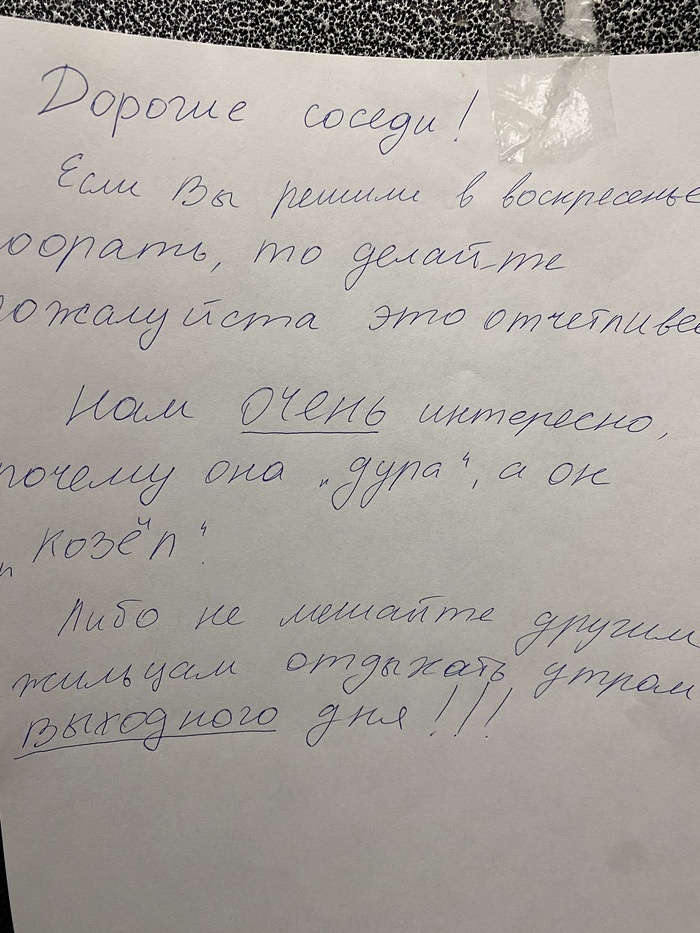 Дорогие соседи!
Если Вы решили в воскресенье
оорать, то делайте
пожалуйста это отчетливее
Нам ОЧЕНЬ интересно,
почему она "дура", а он
"козёл".
Либо не мешайте другим
жильцам отдыхать утром
выходного дня!!!